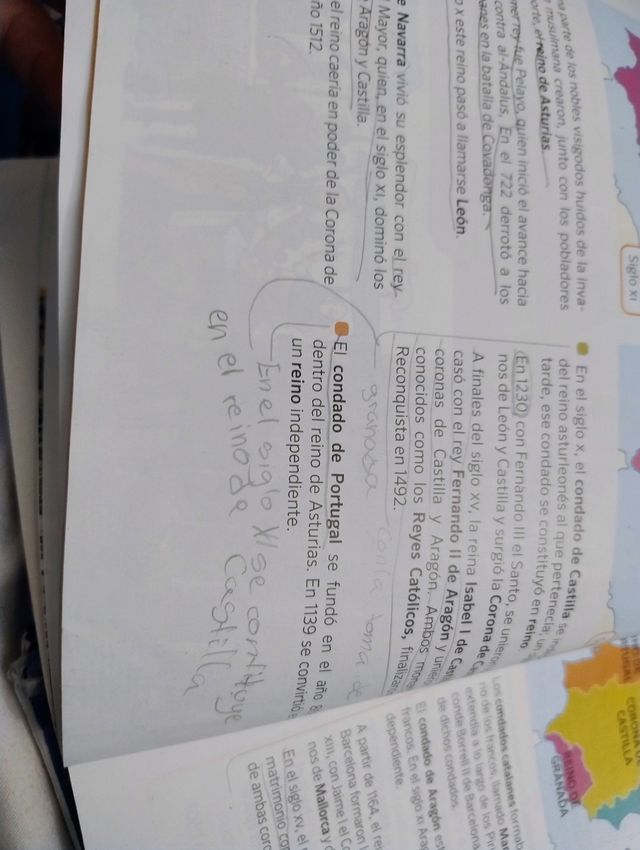 Siglo XI
parte de los nobles visigodos huidos de la inva-
musulmana crearon, junto con los pobladores
el reino de Asturias.
rey fue Pelayo, quien inició el avance hacia
contra al-Ándalus. En el 722 derrotó a los
en la batalla de Covadonga.
x este reino pasó a llamarse León.
Navarra vivió su esplendor con el rey
Mayor, quien, en el siglo XI, dominó los
Aragón y Castilla.
el reino caería en poder de la Corona de
1512.
En el siglo X, el condado de Castilla se
del reino asturleonés al que pertenecía; un
tarde, ese condado se constituyó en reino
En 1230, con Fernando III el Santo, se
nos de León y Castilla y surgió la Corona de
A finales del siglo XV, la reina Isabel I de
casó con el rey Fernando II de Aragón y
coronas de Castilla y Aragón. Ambos
conocidos como los Reyes Católicos,
Reconquista en 1492.
granada con la toma de
El condado de Portugal se fundó en el año
dentro del reino de Asturias. En 1139 se convirtió
un reino independiente.
En el siglo XI se constituye
en el reino de Castilla
CASTILLA
REINO DE
GRANADA
Los condados catalanes
no de los francos, llamado
extendía a lo largo de los
conde Borrell II de Barcelona,
de dichos condados.
El condado de Aragón
francos. En el siglo XI
dependiente.
A partir de 1164, el
Barcelona formaron
XIII, con Jaime I el
nos de Mallorca y
En el siglo XV, el
matrimonio con
de ambas